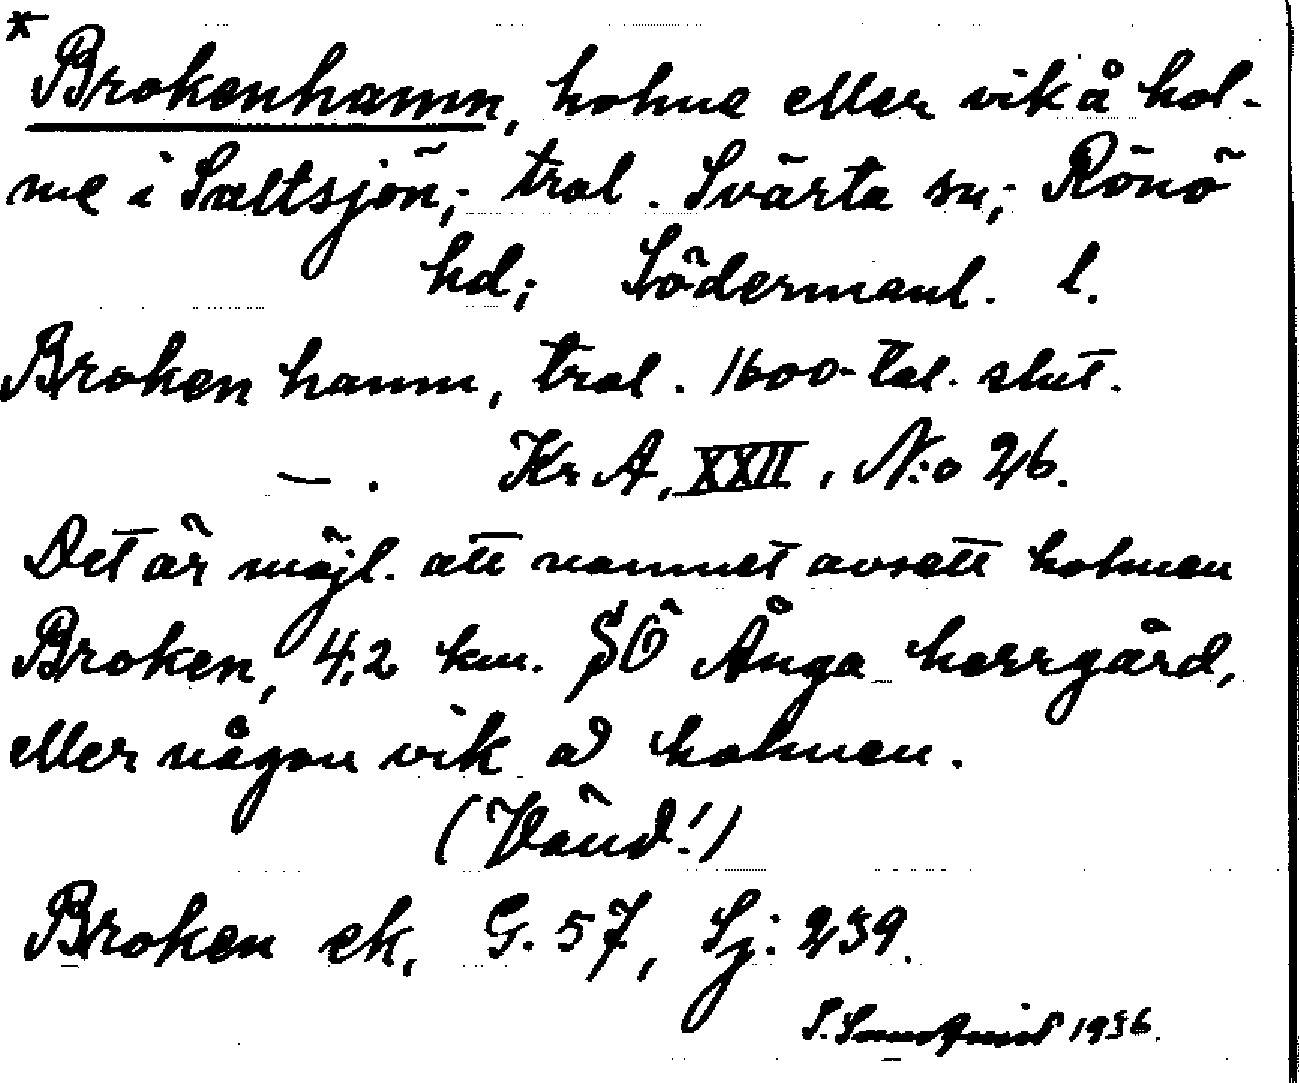 * Brokenhamn, holme eller vik å hol-
me i Saltsjön; trol. Svärta sn; Rönö
hd; Södermanl. l.
Broken hamn, trol. 1600-tal. slut.
—. Kr A, XXII, N:o 26.
Det är möjl. att namnet avsett holmen
Broken, 4,2 km. SÖ Ånga herrgård,
eller någon vik å holmen.
(Vänd!)
Broken ek, G. 57, Sj: 239.
S. 1936.